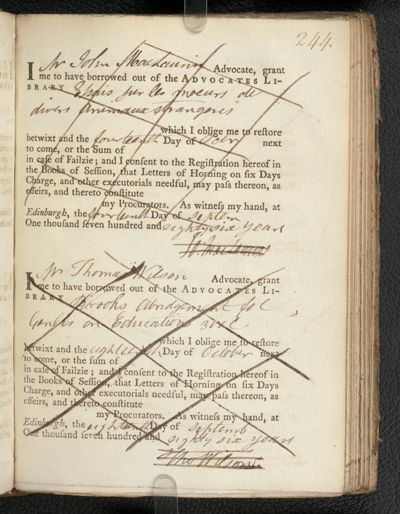 244.
I Mr John Maclaurin Advocate, grant
me to have borrowed out of the ADVOCATES LI-
BRARY Essais sur les moeurs de
divers animaux etrangeres
which I oblige me to restore
betwixt and the fourteenth Day of Octr next
to come, or the Sum of
in case of Failzie; and I consent to the Registration hereof in
the Books of Session, that Letters of Horning on six Days
Charge, and other executorials needful, may pass thereon, as
effeirs, and thereto constitute
my Procurators. As witness my hand, at
Edinburgh, the fourteenth Day of Septem
One thousand seven hundred and eighty six years
I Mr Thomas Wilson Advocate, grant
me to have borrowed out of the ADVOCATES LI-
BRARY Brooks Abridgement
on Education 3 vol
which I oblige me to restore
betwixt and the eighteenth Day of October next
to come, or the sum of
in case of Failzie; and I consent to the Registration hereof in
the Books of Session, that Letters of Horning on six Days
Charge, and other executorials needful, may pass thereon, as
effeirs, and thereto constitute
my Procurators. As witness my hand, at
Edinburgh, the eighteenth Day of Septemb
One thousand seven hundred and eighty six years
Tho Wilson